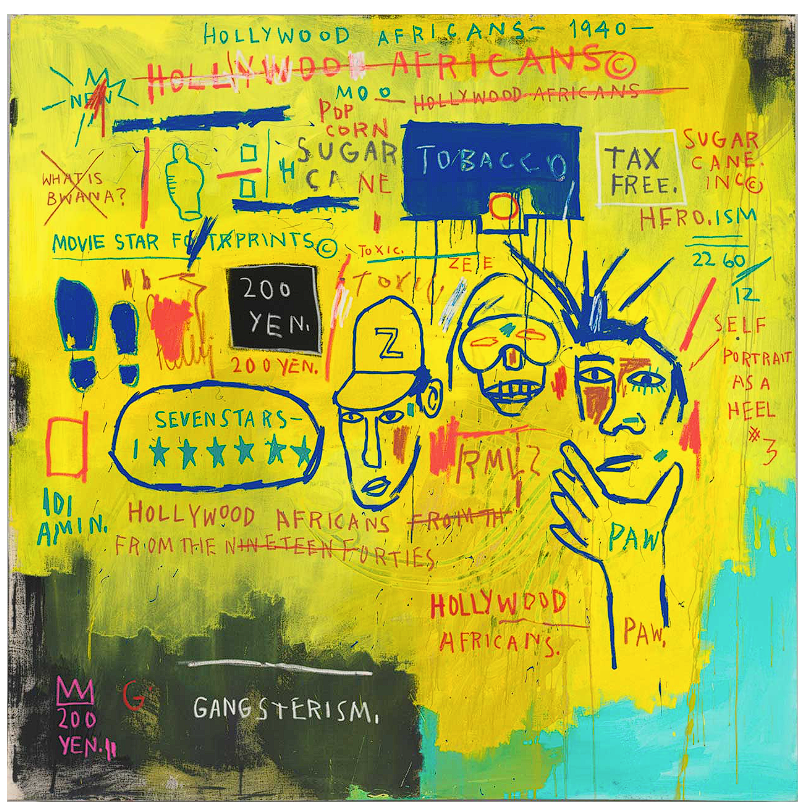 HOLLYWOOD AFRICANS– 1940–
HOLLYWOOD AFRICANS©
NEW
MOO
HOLLYWOOD AFRICANS
POP
CORN
SUGAR
CANE
H
TOBACCO
TAX
FREE.
SUGAR
CANE.
INC©
WHAT IS
BWANA?
HERO.ISM
MOVIE STAR FOOTPRINTS©
TOXIC.
ZEE
TOXIC
22 60
12
200
YEN.
200 YEN.
Z
SELF
PORTRAIT
AS A
HEEL
#3
SEVEN STARS–
1 ★★★★★★
RMLZ
IDI
AMIN.
HOLLYWOOD AFRICANS FROM TH
FROM THE NINETEEN FORTIES
PAW
PAW.
HOLLYWOOD
AFRICANS.
G
GANGSTERISM.
200
YEN.